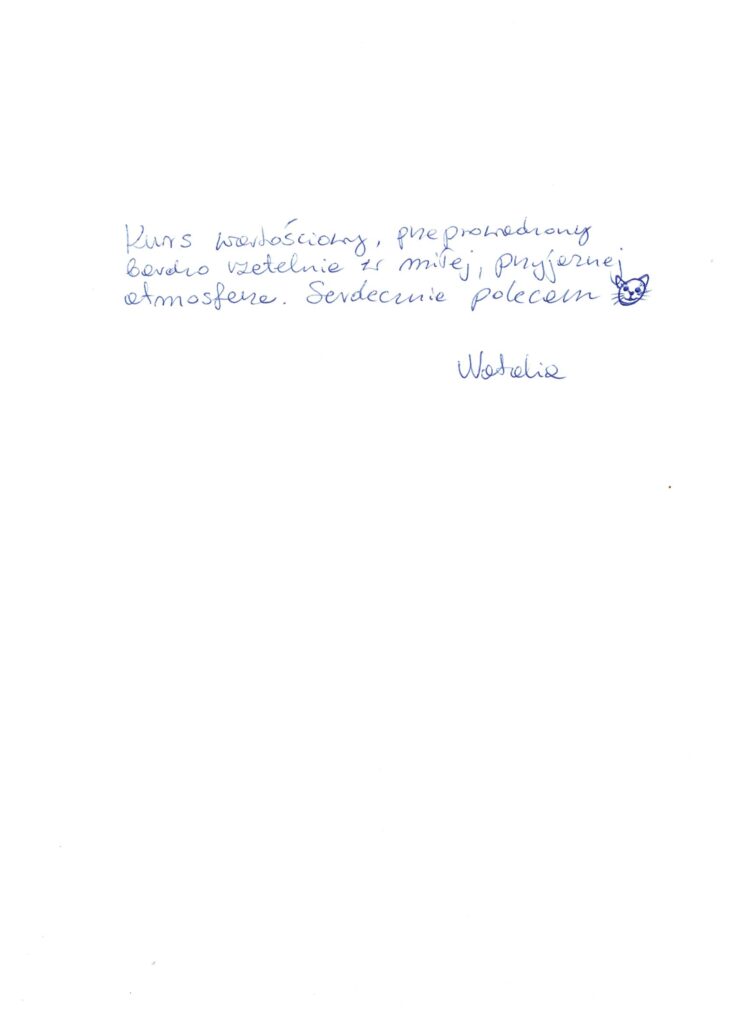 Kurs wartościowy, przeprowadzony
bardzo rzetelnie w miłej, przyjaznej
atmosferze. Serdecznie polecam
Natalia